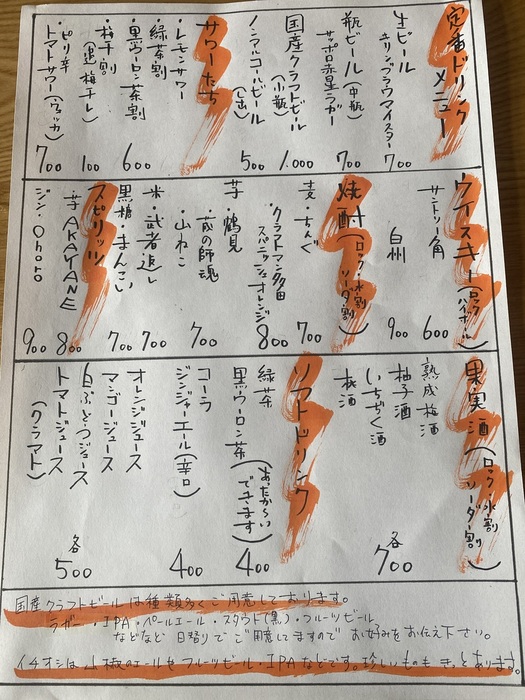 定番ドリンク
メニュー
生ビール
キリンブラウマイスター 700
瓶ビール(中瓶)
サッポロ赤星ラガー 700
国産クラフトビール
(小瓶) 1,000
ノンアルコールビール
(小瓶) 500
サワーたち
・レモンサワー
・緑茶割
・黒ウーロン茶割 600
・梅干割
(追梅干し) 100
・ピリ辛
トマトサワー(ウォッカ) 700
ウイスキー(ロック・ハイボール)
サントリー角 600
白州 900
焼酎(ロック・水割 ソーダ割)
麦・ちんぐ 700
・クラフトマン多田
スパニッシュオレンジ 800
芋・鶴見
・蔵の師魂 700
・山ねこ
米・武者返し 700
黒糖・まんこい 700
スピリッツ
・芋 AKAYANE 800
ジン・OHORO 900
果実酒(ロック・水割 ソーダ割)
熟成梅酒
柚子酒
いちぢく酒 各700
桃酒
ソフトドリンク
緑茶
黒ウーロン茶(あったかいの できます) 400
コーラ
ジンジャーエール(辛口) 400
オレンジジュース
マンゴージュース
白ぶどうジュース 各500
トマトジュース
(クラマト)
国産クラフトビールは種類多くご用意しております。
ラガー・IPA・ペールエール・スタウト(黒)・フルーツビール
などなど 日替りでご用意してますので お好みをお伝え下さい。
イチオシは山椒のエールやフルーツビール・IPAなどです。珍しいものもきっとあります。